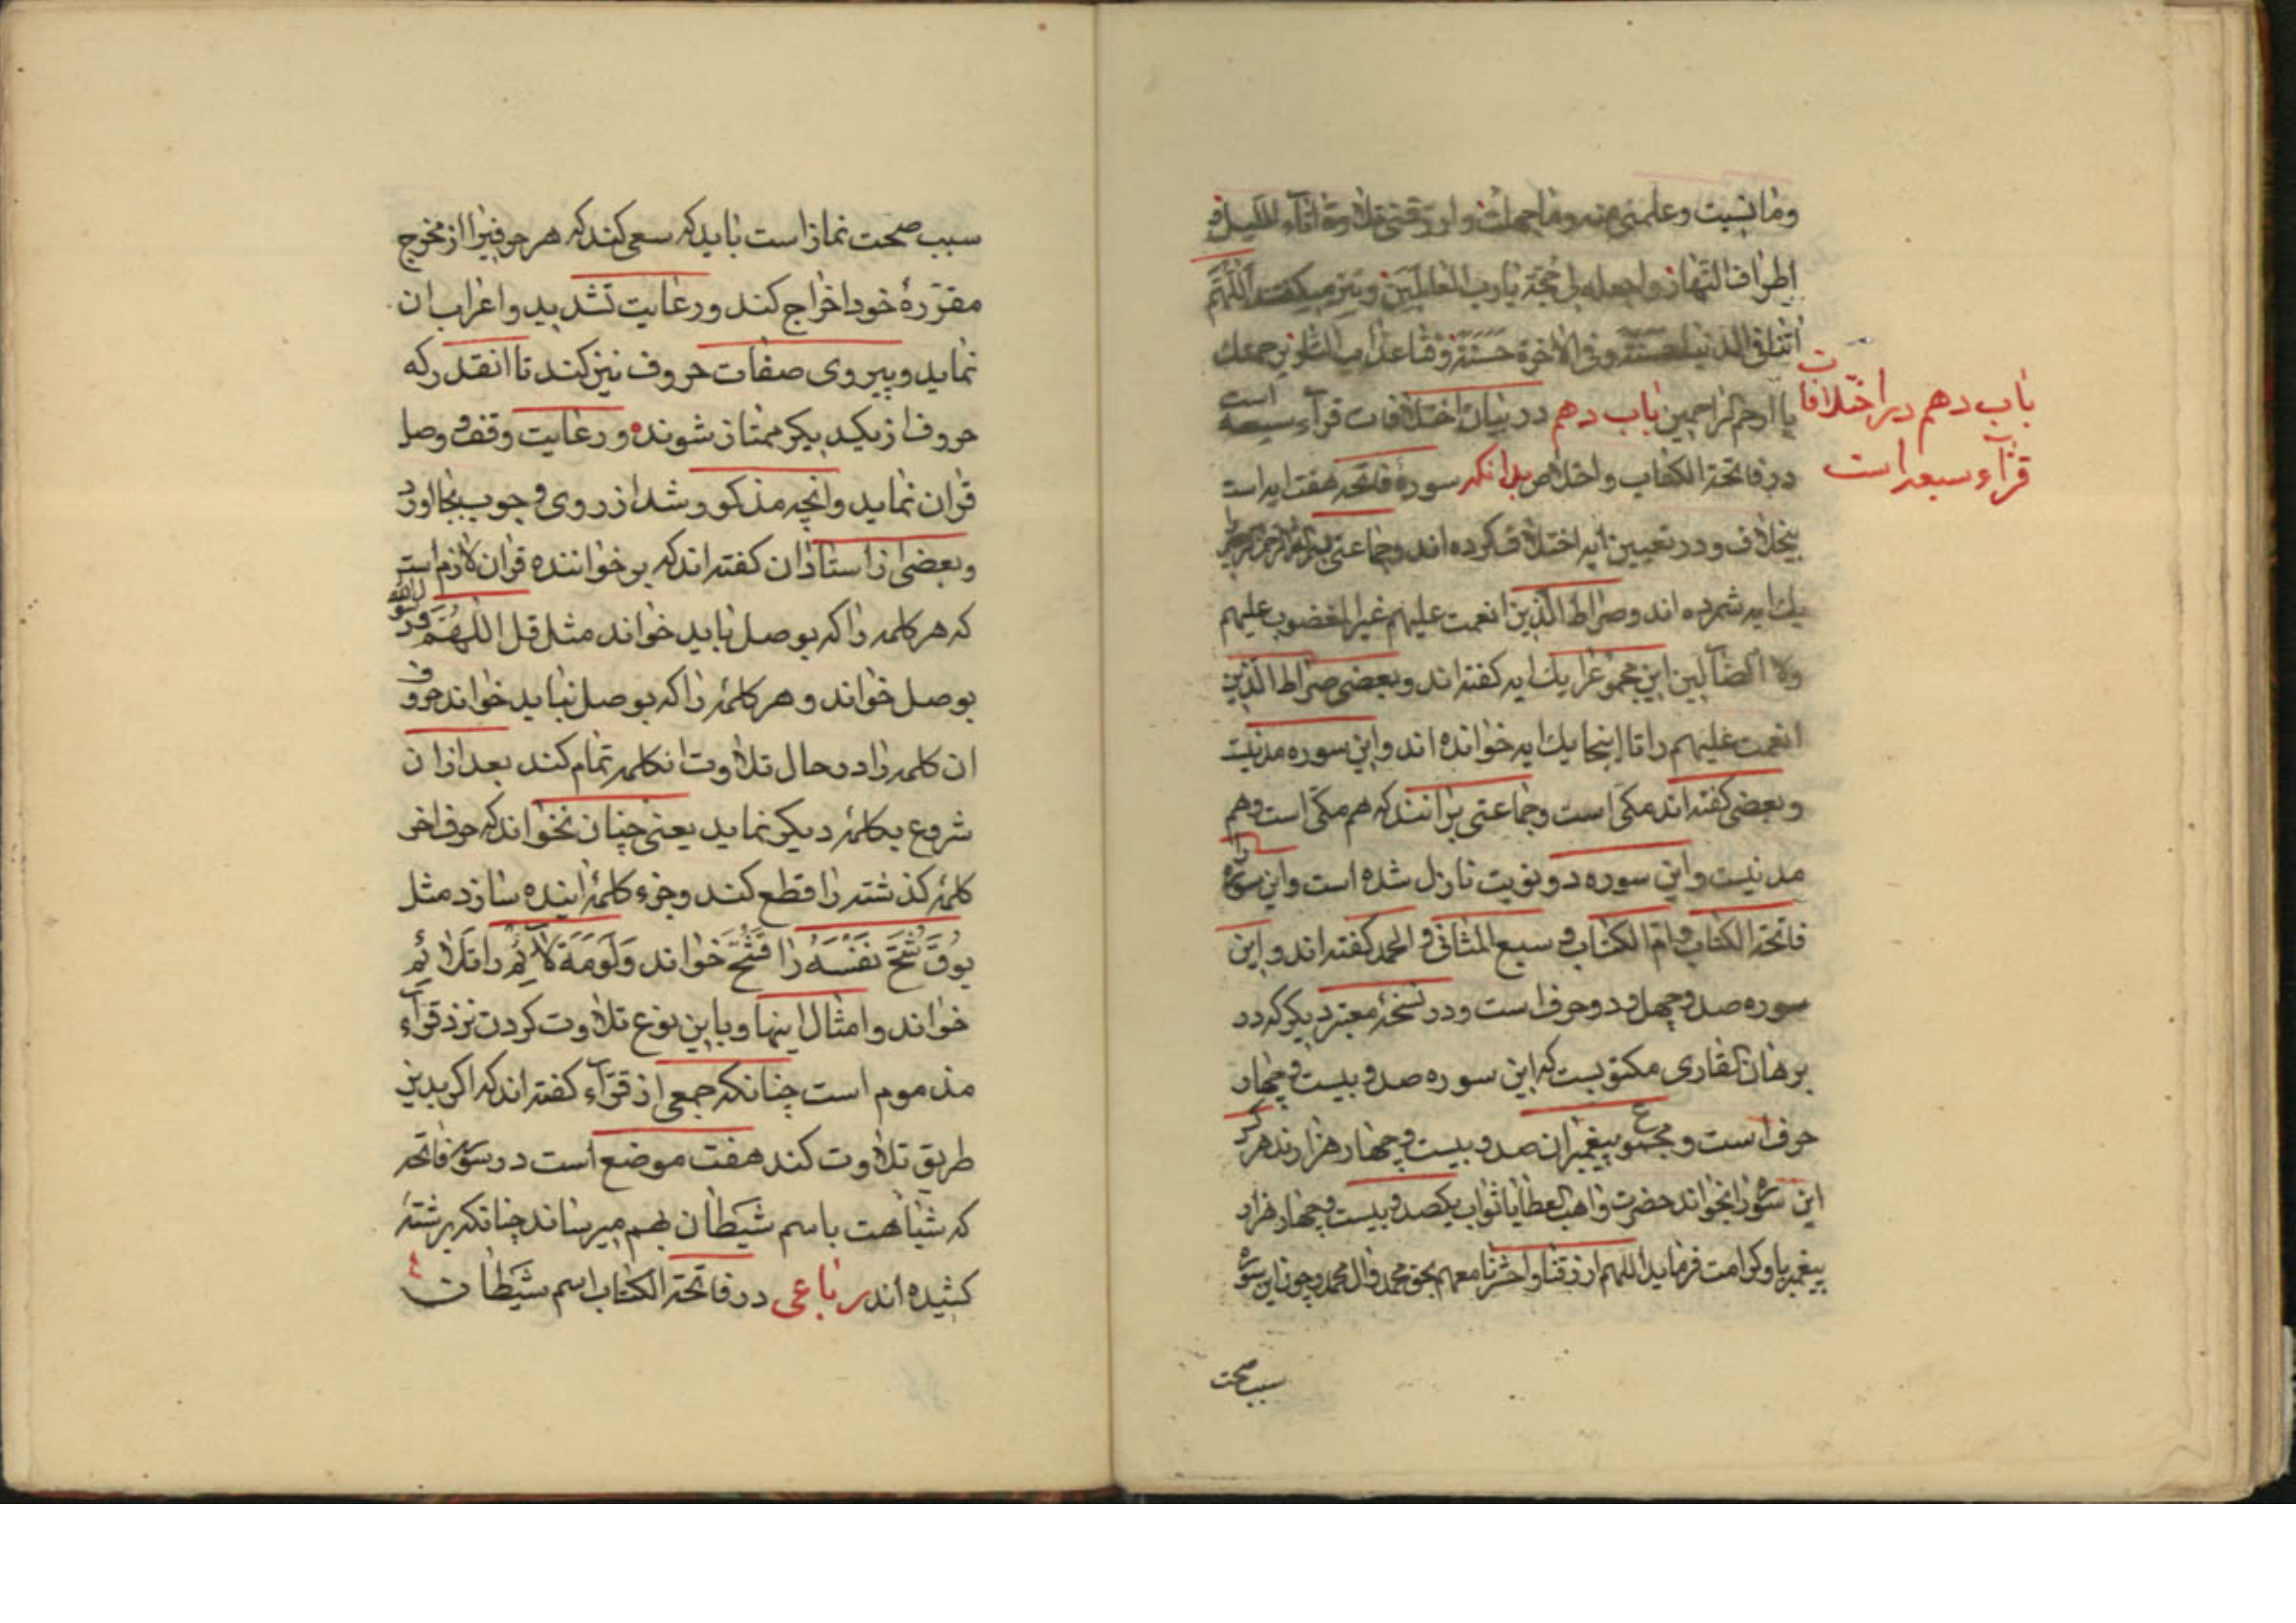 وما نسیت وعلمنی منه وما جهلت وارزقنی تلاوة اناء اللیل و
اطراف النهار واجعله لی حجة یا رب العالمین ونیز میکفت اللهم
اتنا فی الدنیا حسنة وفی الاخرة حسنة وقنا عذاب النار برحمتك
یا ارحم الراحمین باب دهم در بیان اختلافات قرآء سبعه است
باب دهم در اختلافات
قرآء سبعه است
در فاتحة الکتاب واخلاص بدانکه سورۀ فاتحه هفت ایه است
بیخلاف ودر تعیین ایه اختلاف کرده اند وجماعتی بسم الله الرحمن الرحیم را
یك ایه شمرده اند وصراط الذین انعمت علیهم غیر المغضوب علیهم
ولا الضآلین این مجموع را یك ایه کفته اند وبعضی صراط الذین
انعمت علیهم را تا اینجا یك ایه خوانده اند واین سوره مدنیست
وبعضی کفته اند مکی است وجماعتی برانند که هم مکی است وهم
مدنیست واین سوره دو نوبت نازل شده است واین سوره را
فاتحة الکتاب وام الکتاب و سبع المثانی و الحمد کفته اند واین
سوره صد وچهل ودو حرف است ودر نسخۀ معتبر دیکر که در
برهان القاری مکتوبست که این سوره صد وبیست وچهار
حرف است ومجموع پیغمبران صد وبیست وچهار هزارند هر که
این سوره را بخواند حضرت واهب العطایا ثواب یکصد وبیست وچهار هزار
پیغمبر باو کرامت فرماید اللهم ارزقنا واحشرنا معهم بحق محمد وال محمد وچون این سوره
سبب صحت
سبب صحت نماز است باید که سعی کند که هر حرفیرا از مخرج
مقررۀ خود اخراج کند ورعایت تشدید واعراب ان
نماید وپیروی صفات حروف نیز کند تا انقدر که
حروف از یکدیکر ممتاز شوند ورعایت وقف و وصل
قران نماید وانچه مذکور شد از روی وجوب بجا اورد
وبعضی از استادان کفته اند که بر خواننده قران لازم است
که هر کلمه را که بوصل باید خواند مثل قل اللهم و رسول الله
بوصل خواند و هر کلمۀ را که بوصل نباید خواند حروف
ان کلمه را در حال تلاوت انکلمه تمام کند بعد از ان
شروع بکلمۀ دیکر نماید یعنی چنان نخواند که حرف اخر
کلمۀ کذشته را قطع کند وجزء کلمۀ اینده سازد مثل
یوق شح نفسه را قشح خواند ولومة لآئم را تلائم
خواند وامثال اینها وباین نوع تلاوت کردن نزد قرآء
مذموم است چنانکه جمعی از قرآء کفته اند که اکر بدین
طریق تلاوت کند هفت موضع است در سوره فاتحه
که شباهت باسم شیطان بهم میرساند چنانکه برشتۀ
کشیده اند رباعی در فاتحة الکتاب اسم شیطان